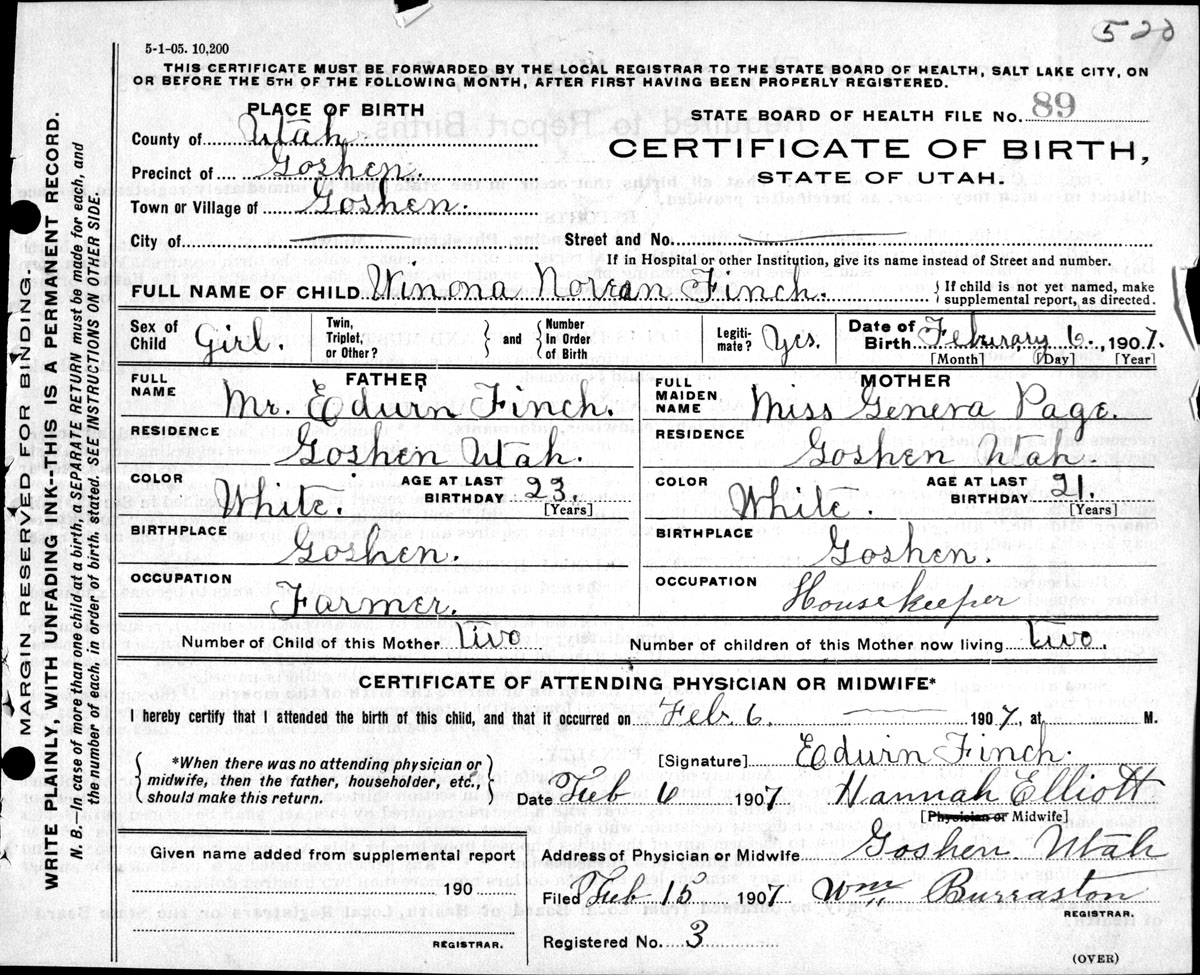 520
5-1-05. 10,200
THIS CERTIFICATE MUST BE FORWARDED BY THE LOCAL REGISTRAR TO THE STATE BOARD OF HEALTH, SALT LAKE CITY, ON
OR BEFORE THE 5TH OF THE FOLLOWING MONTH, AFTER FIRST HAVING BEEN PROPERLY REGISTERED.
PLACE OF BIRTH
STATE BOARD OF HEALTH FILE No. 89
County of Utah
CERTIFICATE OF BIRTH,
Precinct of Goshen.
STATE OF UTAH.
Town or Village of Goshen.
City of
Street and No.
If in Hospital or other Institution, give its name instead of Street and number.
FULL NAME OF CHILD Winona Finch. { If child is not yet named, make supplemental report, as directed.
Sex of Child Girl Twin, Triplet, or Other? } and { Number In Order of Birth Legiti-mate? Yes. Date of Birth February 6., 1907.
[Month] (Day) [Year]
FATHER
FULL NAME Mr. Edwin Finch.
MOTHER
FULL MAIDEN NAME Miss Geneva Page.
RESIDENCE Goshen Utah.
RESIDENCE Goshen Utah.
COLOR White. AGE AT LAST BIRTHDAY 23. [Years]
COLOR White. AGE AT LAST BIRTHDAY 21. [Years]
BIRTHPLACE Goshen.
BIRTHPLACE Goshen.
OCCUPATION Farmer.
OCCUPATION Housekeeper
Number of Child of this Mother Two
Number of children of this Mother now living Two.
CERTIFICATE OF ATTENDING PHYSICIAN OR MIDWIFE*
I hereby certify that I attended the birth of this child, and that it occurred on Feb. 6 1907, at M.
{ *When there was no attending physician or midwife, then the father, householder, etc., should make this return. }
[Signature] Edwin Finch.
Date Feb 6 1907 Hannah Elliott
[Physician or Midwife]
Given name added from supplemental report
Address of Physician or Midwife Goshen Utah
190
Filed Feb 15 1907 Wm Burraston
REGISTRAR.
REGISTRAR.
Registered No. 3
(OVER)
MARGIN RESERVED FOR BINDING
WRITE PLAINLY, WITH UNFADING INK--THIS IS A PERMANENT RECORD.
N. B.—In case of more than one child at a birth, a SEPARATE RETURN must be made for each, and
the number of each, in order of birth, stated. SEE INSTRUCTIONS ON OTHER SIDE.